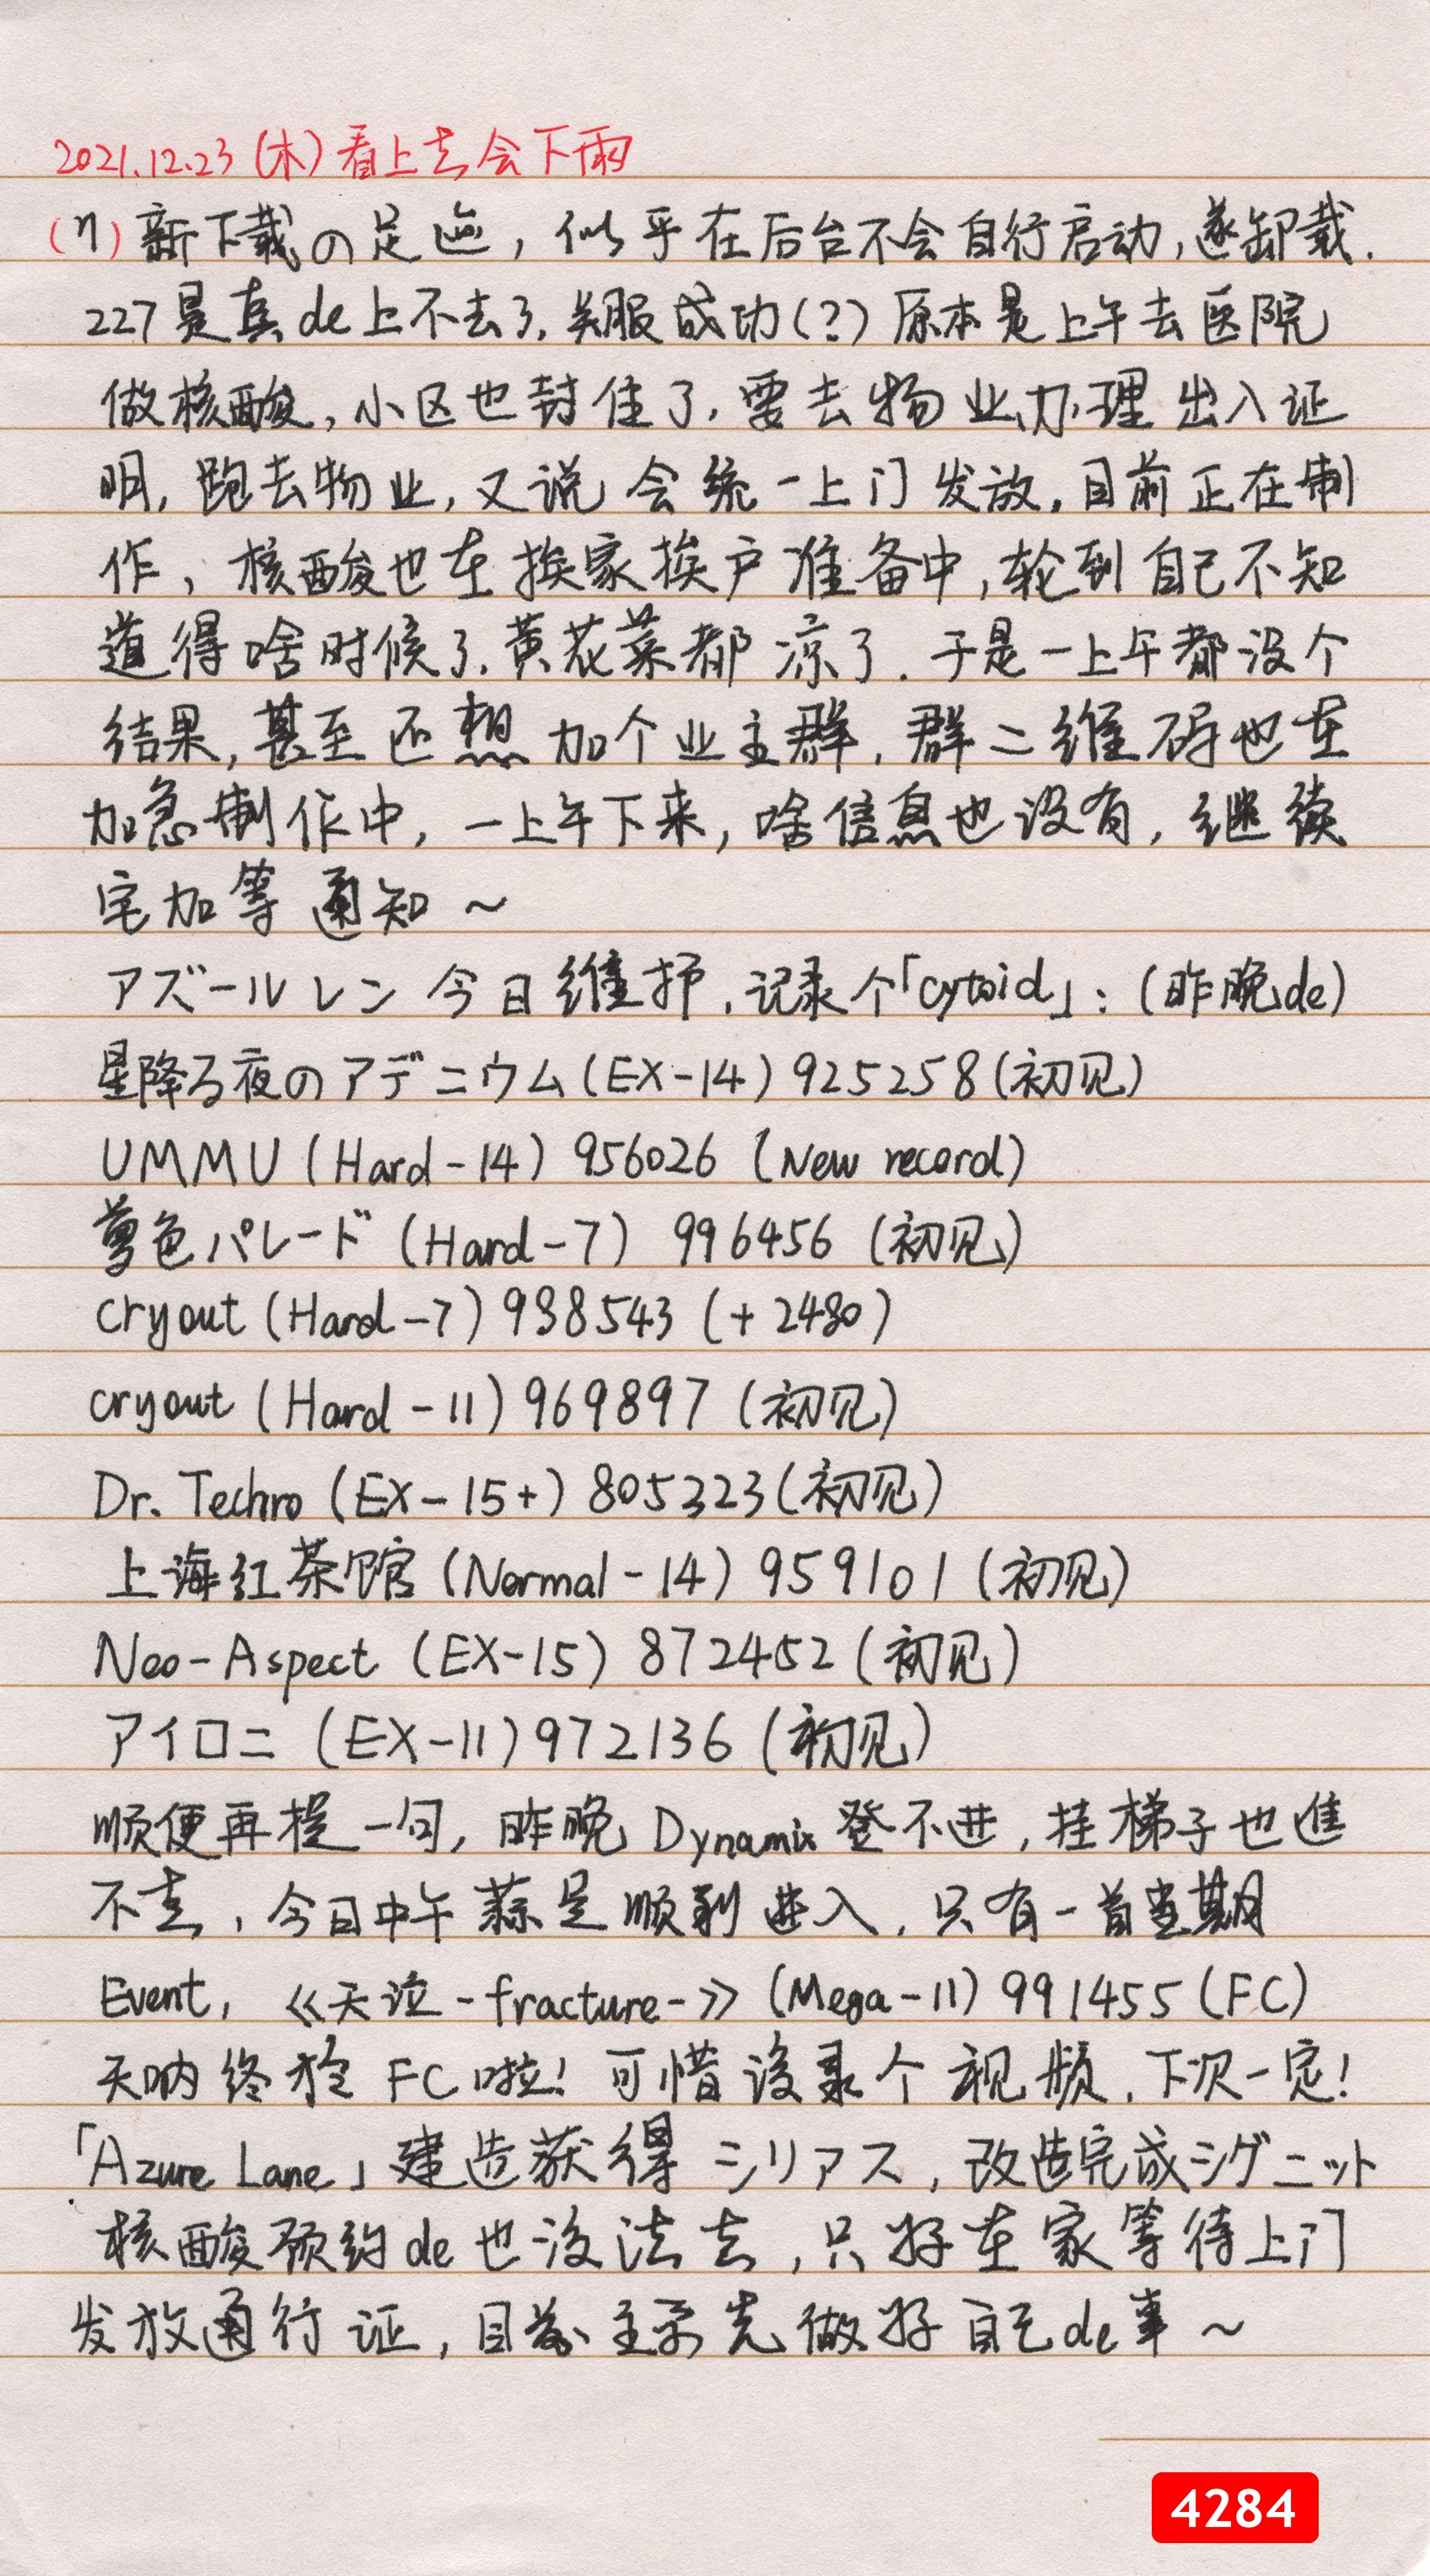 2021.12.23(木)看上去会下雨
(7)新下载の足迹,似乎在后台不会自行启动,遂卸载.
227是真de上不去了,关服成功(?)原本是上午去医院
做核酸,小区也封住了,要去物业办理出入证
明,跑去物业,又说会统一上门发放,目前正在制
作,核酸也在挨家挨户准备中,轮到自己不知
道得啥时候了,黄花菜都凉了.于是一上午都没个
结果,甚至还想加个业主群,群二维码也在
加急制作中,一上午下来,啥信息也没有,继续
宅加等通知~
アズールレン今日维护,记录个「cytoid」:(昨晚de)
星降る夜のアデニウム(EX-14)925258(初见)
UMMU(Hard-14)956026(New record)
色パレード(Hard-7)996456(初见)
cryout(Hard-7)988543(+2480)
cryout(Hard-11)969897(初见)
Dr. Techro(EX-15+)805323(初见)
上海红茶馆(Normal-14)959101(初见)
Neo-Aspect(EX-15)872452(初见)
アイロニ(EX-11)972136(初见)
顺便再提一句,昨晚Dynamix登不进,挂梯子也進
不去,今日中午蒜是顺利进入,只有一首当期
Event,《天泣-fracture-》(Mega-11)991455(FC)
天呐终於FC啦!可惜没录个视频,下次一定!
「Azure Lane」建造获得シリアス,改造完成シグニット
核酸预约de也没法去,只好在家等待上门
发放通行证,目前主要先做好自己de事~
4284